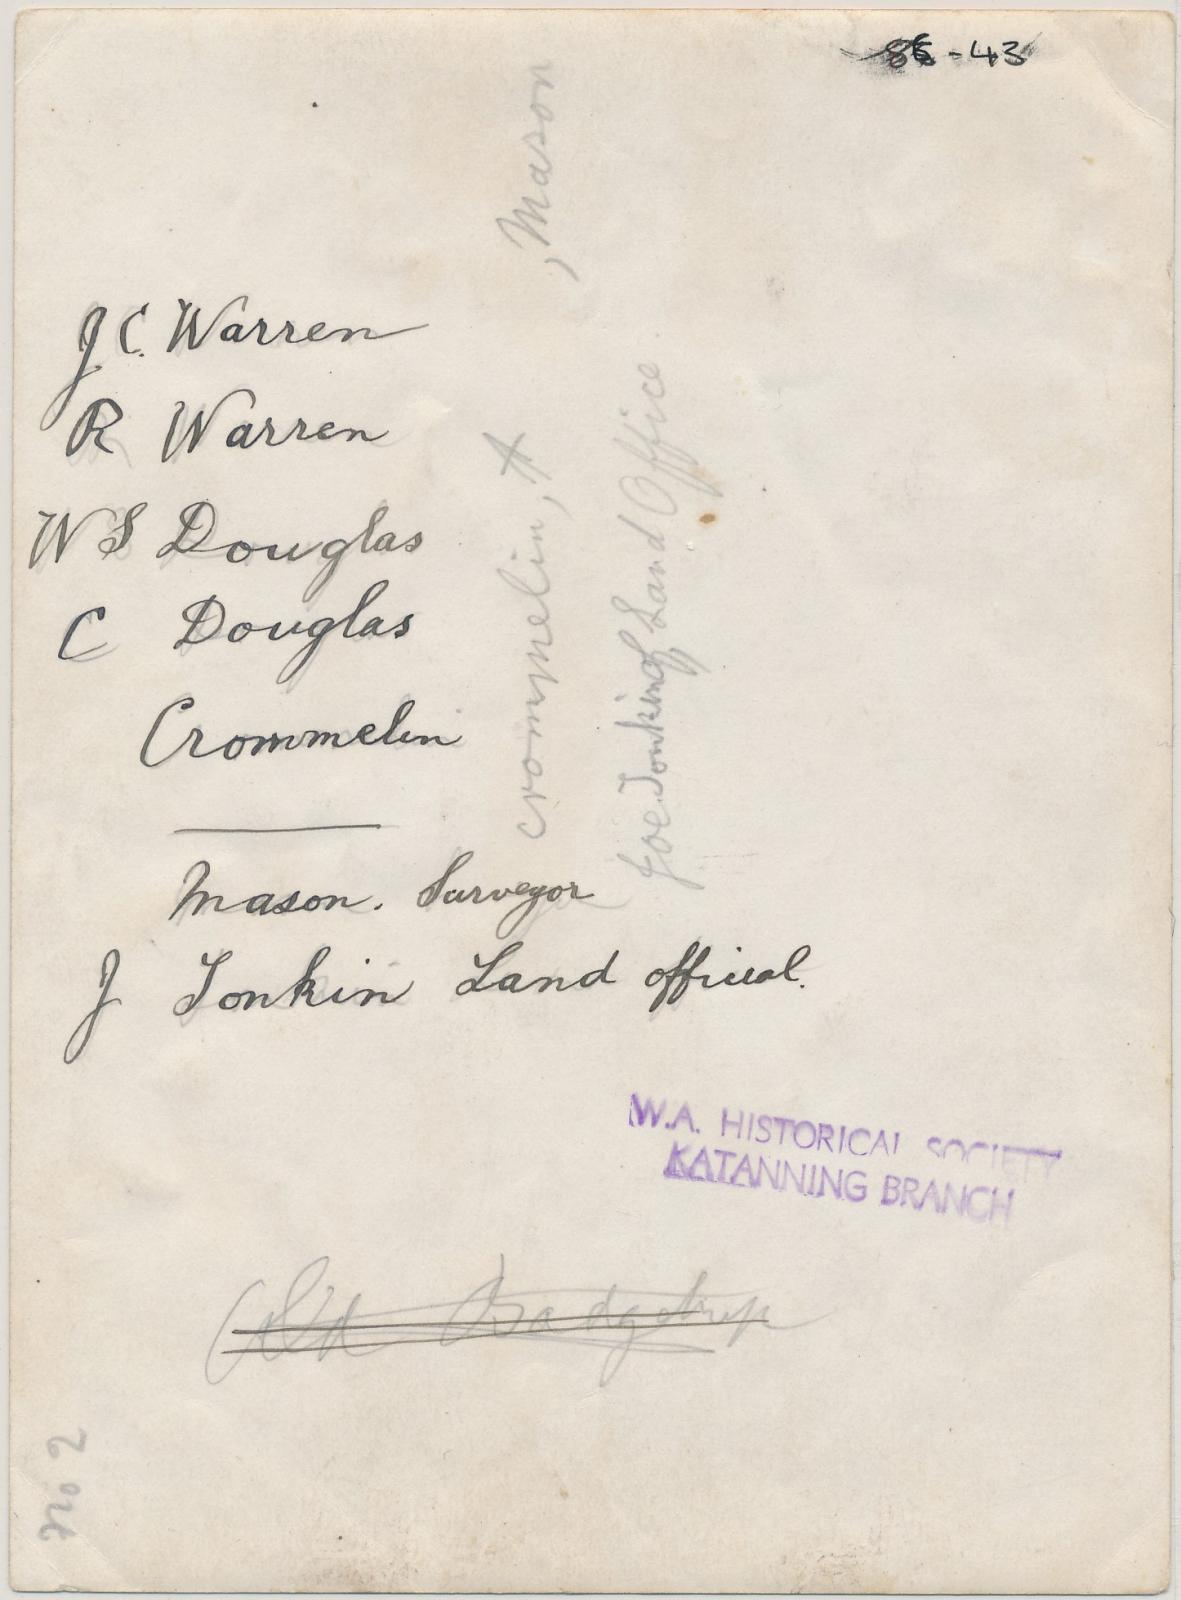 86-43
J C. Warren
R Warren
W S Douglas
C Douglas
Crommelin
Mason. Surveyor
J Tonkin Land official.
crommelin, A , Mason
Joe Tonking Land Office
W.A. HISTORICAL SOCIETY
KATANNING BRANCH
Old Badgebup
No 2